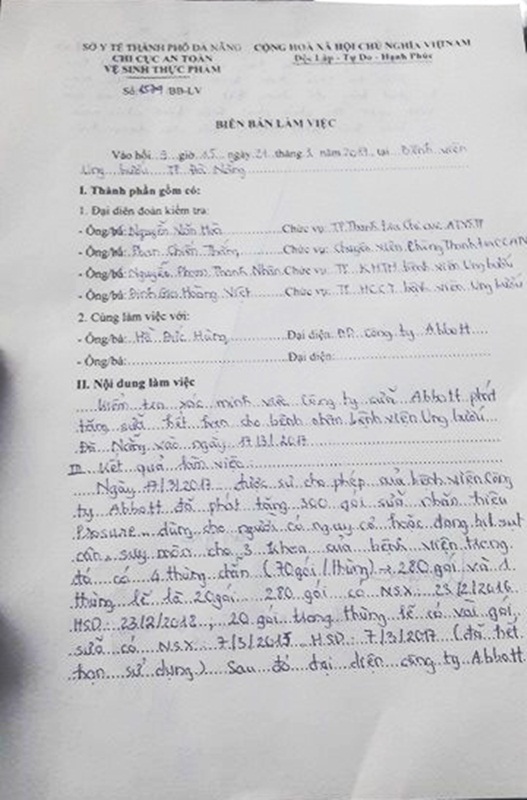 SỞ Y TẾ THÀNH PHỐ ĐÀ NẴNG CỘNG HOÀ XÃ HỘI CHỦ NGHĨA VIỆT NAM
CHI CỤC AN TOÀN Độc Lập - Tự Do - Hạnh Phúc
VỆ SINH THỰC PHẨM
Số: /BB-LV
BIÊN BẢN LÀM VIỆC
Vào hồi 9 giờ 15 ngày 21 tháng 3 năm 2017, tại Bệnh viện
Ung bướu TP Đà Nẵng
I. Thành phần gồm có:
1. Đại diện đoàn kiểm tra:
- Ông/bà: Nguyễn Văn Chức vụ: TP Thanh tra Chi cục ATVSTP
- Ông/bà: Phan Chiến Thắng Chức vụ: Chuyên viên phòng Thanh tra CCATVSTP
- Ông/bà: Nguyễn Phạm Thanh Nhân Chức vụ: TP KHTH bệnh viện Ung bướu
- Ông/bà: Đinh Gia Hoàng Việt Chức vụ: TP HCCT bệnh viện Ung bướu
2. Cùng làm việc với:
- Ông/bà: Hà Đức Hùng Đại diện: công ty Abbott
- Ông/bà: Đại diện:
II. Nội dung làm việc
Kiểm tra xác minh việc Công ty sữa Abbott phát
tặng sữa hết hạn cho bệnh nhân bệnh viện Ung bướu
Đà Nẵng vào ngày 17/3/2017
III. Kết quả làm việc:
Ngày 17/3/2017 được sự cho phép của bệnh viện Công
ty Abbott đã phát tặng 300 gói sữa nhãn hiệu
Prosure dùng cho người có nguy cơ hoặc đang bị sụt
cân, suy mòn cho 3 khoa của bệnh viện trong
đó có 4 thùng chẵn (70gói/thùng) → 280 gói và 1
thùng lẻ là 20gói. 280 gói có NSX: 23/2/2016
HSD: 23/2/2018, 20 gói trong thùng lẻ có vài gói
sữa có NSX: 7/3/2015 HSD: 7/3/2017 (đã hết
hạn sử dụng). Sau đó đại diện công ty Abbott